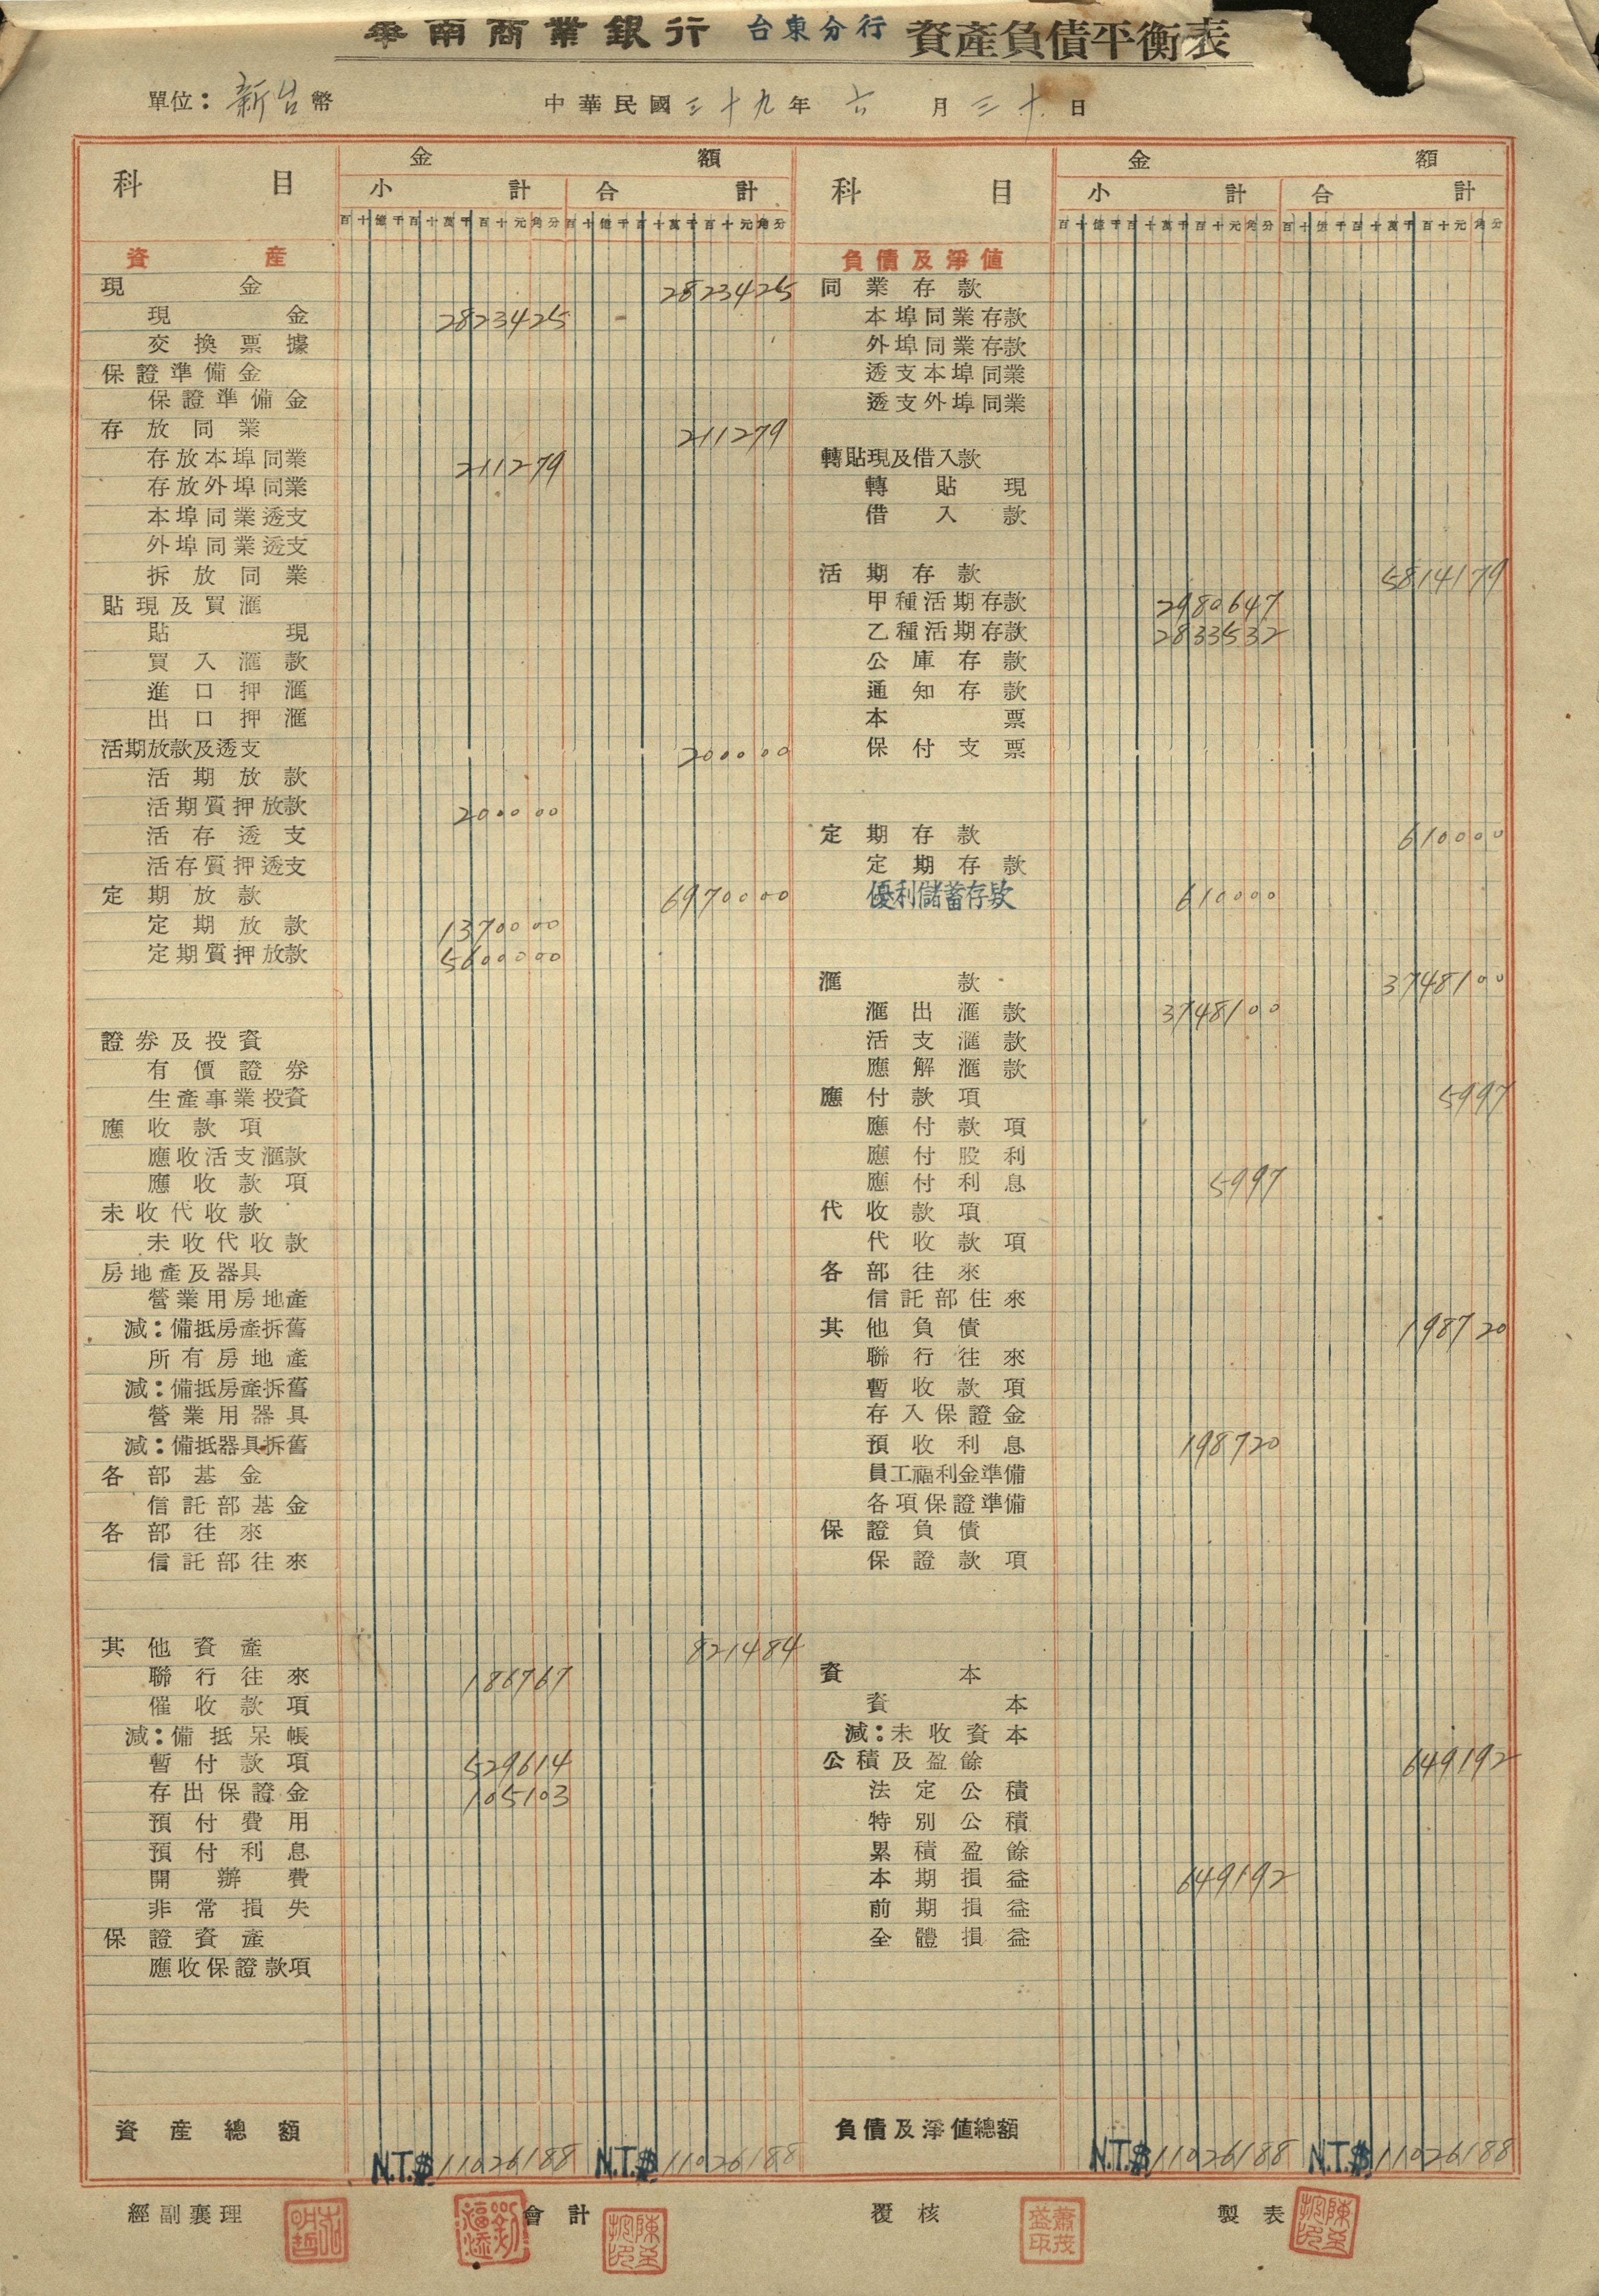 華南商業銀行 台東分行 資產負債平衡表
單位：新台幣 中華民國三十九年六月三十日
科目 金額 科目 金額
小計 合計 小計 合計
百十億千百十萬千百十元角分 百十億千百十萬千百十元角分 百十億千百十萬千百十元角分 百十億千百十萬千百十元角分
資產
現金 2823425
現金 2823425
交換票據
保證準備金
保證準備金
存放同業 211279
存放本埠同業 211279
存放外埠同業
本埠同業透支
外埠同業透支
拆放同業
貼現及買滙
貼現
買入滙款
進口押滙
出口押滙
活期放款及透支 200000
活期放款
活期質押放款 200000
活存透支
活存質押透支
定期放款 6970000
定期放款 1370000
定期質押放款 5600000
證券及投資
有價證券
生產事業投資
應收款項
應收活支滙款
應收款項
未收代收款
未收代收款
房地產及器具
營業用房地產
減：備抵房產拆舊
所有房地產
減：備抵房產拆舊
營業用器具
減：備抵器具拆舊
各部基金
信託部基金
各部往來
信託部往來
其他資產 821484
聯行往來 186767
催收款項
減：備抵呆帳
暫付款項 529614
存出保證金 105103
預付費用
預付利息
開辦費
非常損失
保證資產
應收保證款項
資產總額 N.T.$ 11026188 N.T.$ 11026188
負債及淨値
同業存款
本埠同業存款
外埠同業存款
透支本埠同業
透支外埠同業
轉貼現及借入款
轉貼現
借入款
活期存款 5814179
甲種活期存款 2980647
乙種活期存款 2833532
公庫存款
通知存款
本票
保付支票
定期存款 610000
定期存款
優利儲蓄存款 610000
滙款 3748100
滙出滙款 3748100
活支滙款
應解滙款
應付款項 5997
應付款項
應付股利
應付利息 5997
代收款項
代收款項
各部往來
信託部往來
其他負債 198720
聯行往來
暫收款項
存入保證金
預收利息 198720
員工福利金準備
各項保證準備
保證負債
保證款項
資本
資本
減：未收資本
公積及盈餘 649192
法定公積
特別公積
累積盈餘
本期損益 649192
前期損益
全體損益
負債及淨値總額 N.T.$ 11026188 N.T.$ 11026188
經副襄理 會計 覆核 製表